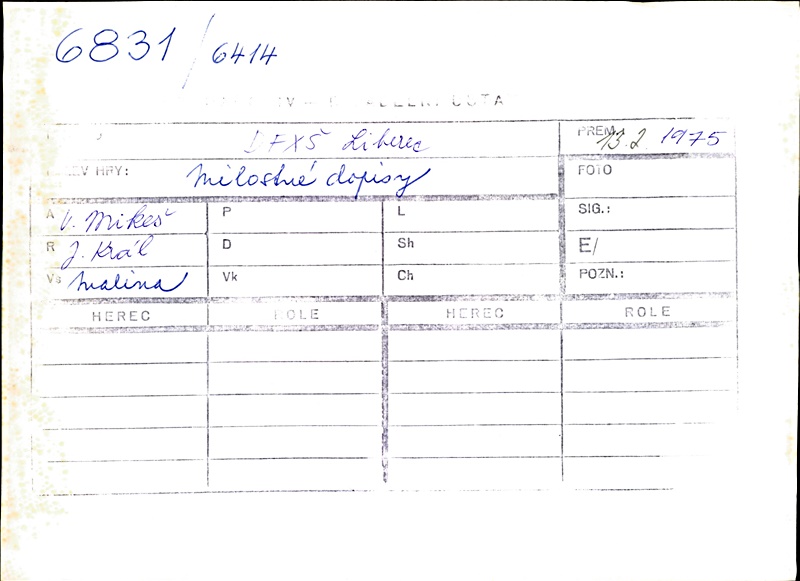 6831 / 6414
DFXŠ Liberec
PREM.: 13.2. 1975
HRY: Milostné dopisy
FOTO
A V. Mikeš P L SIG.:
R J. Král D Sh E/
Vs Malina Vk Ch POZN.:
HEREC ROLE HEREC ROLE